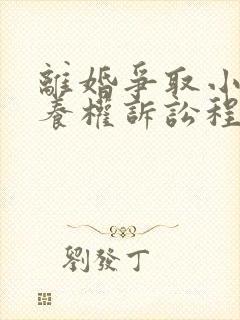 離婚爭取小
養權訴訟程
劉發丁